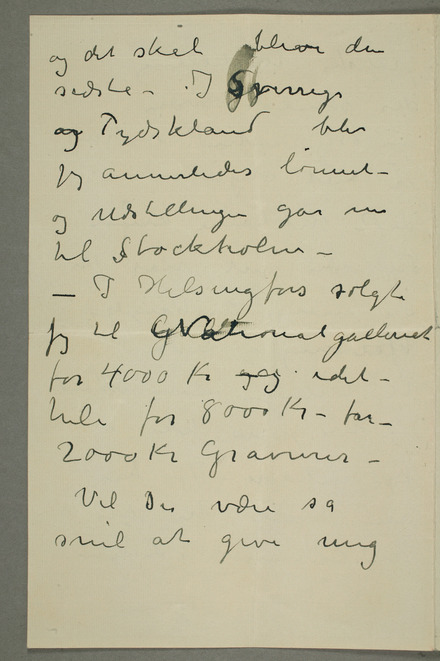 og det skal blive den
sidste – I Sverrige
og Tydskland blir
jeg anderledes lønnet –
og Udstillingen går nu
til Stockholm –
– I Helsingfors solgte
jeg til Nationalgalleriet
for 4000 Kr og idet-
hele for 8000 Kr – for –
2000 Kr Gravurer –
Vil De være så
snil at give mig